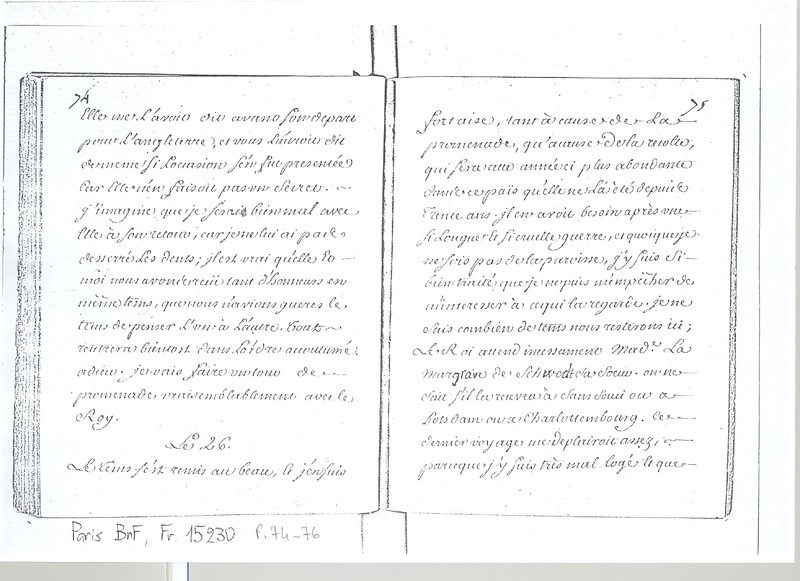 74
Elle me l'avoit dit avant son depart
pour L'angleterre, et vous L'auroit dit
de meme si L'occasion s'en fut presentée
Car Elle n'en faisoit pas un secret.
j'imagine que je serais bien mal avec
Elle à son retour, car je ne lui ai pas
desserré Les dents; il est vrai qu'elle Et
moi nous avons eu tant d'honneurs en
même tems, que nous n'avions gueres le
tems de penser L'un à L'autre. Tout
rentrera bientost dans L'ordre accoutumé.
adieu. je vais faire un tour de
promenade vraisemblablement avec le
Roy.
Le 26.
Le tems s'est remis au beau, et j'en suis
75
fort aise, tant à cause de La
promenade, qu'a cause de la recolte,
qui sera cette année ci plus abondante
dans ce païs qu'elle ne L'a été depuis
trente ans. il en avoit besoin après une
si Longue Et si cruelle guerre, et quoique je
ne sois pas de la paroisse, j'y suis si
bien traité que je ne puis m'empêcher de
m'interesser à ce qui la regarde. je ne
sais combien de tems nous resterons ici;
Le Roi attend incessament Mad.e La
Margrave de Schwedt sa Soeur. on ne
sait s'il la recevra à Sans Souci ou a
Potsdam ou a Charlottembourg. ce
dernier voyage me deplairoit assez,
parceque j'y suis très mal logé Et que
Paris BnF, Fr. 15230 p. 74-76